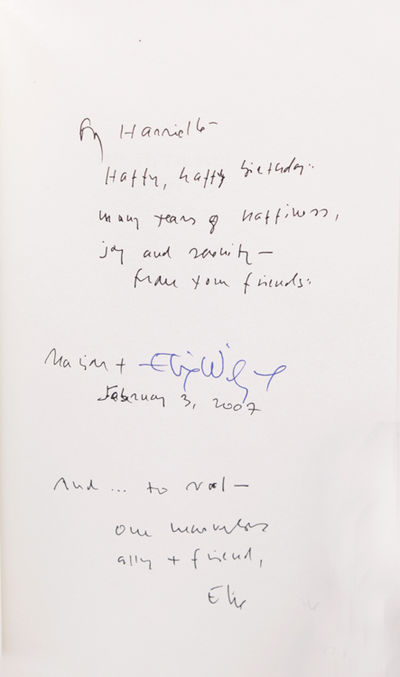 For Harriette –
Happy, happy birthday:
many years of happiness,
joy and serenity –
from your friends:
Marion + Elie Wiesel
February 3, 2007
And ... to Val –
our marvelous
ally + friend,
Elie